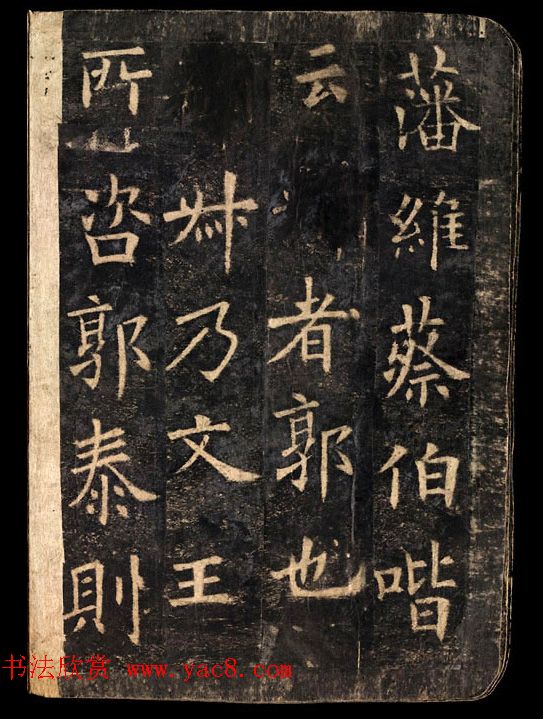 藩維蔡伯喈
云者郭也
乃文王
所咨郭泰則
书法欣赏 www.yac8.com